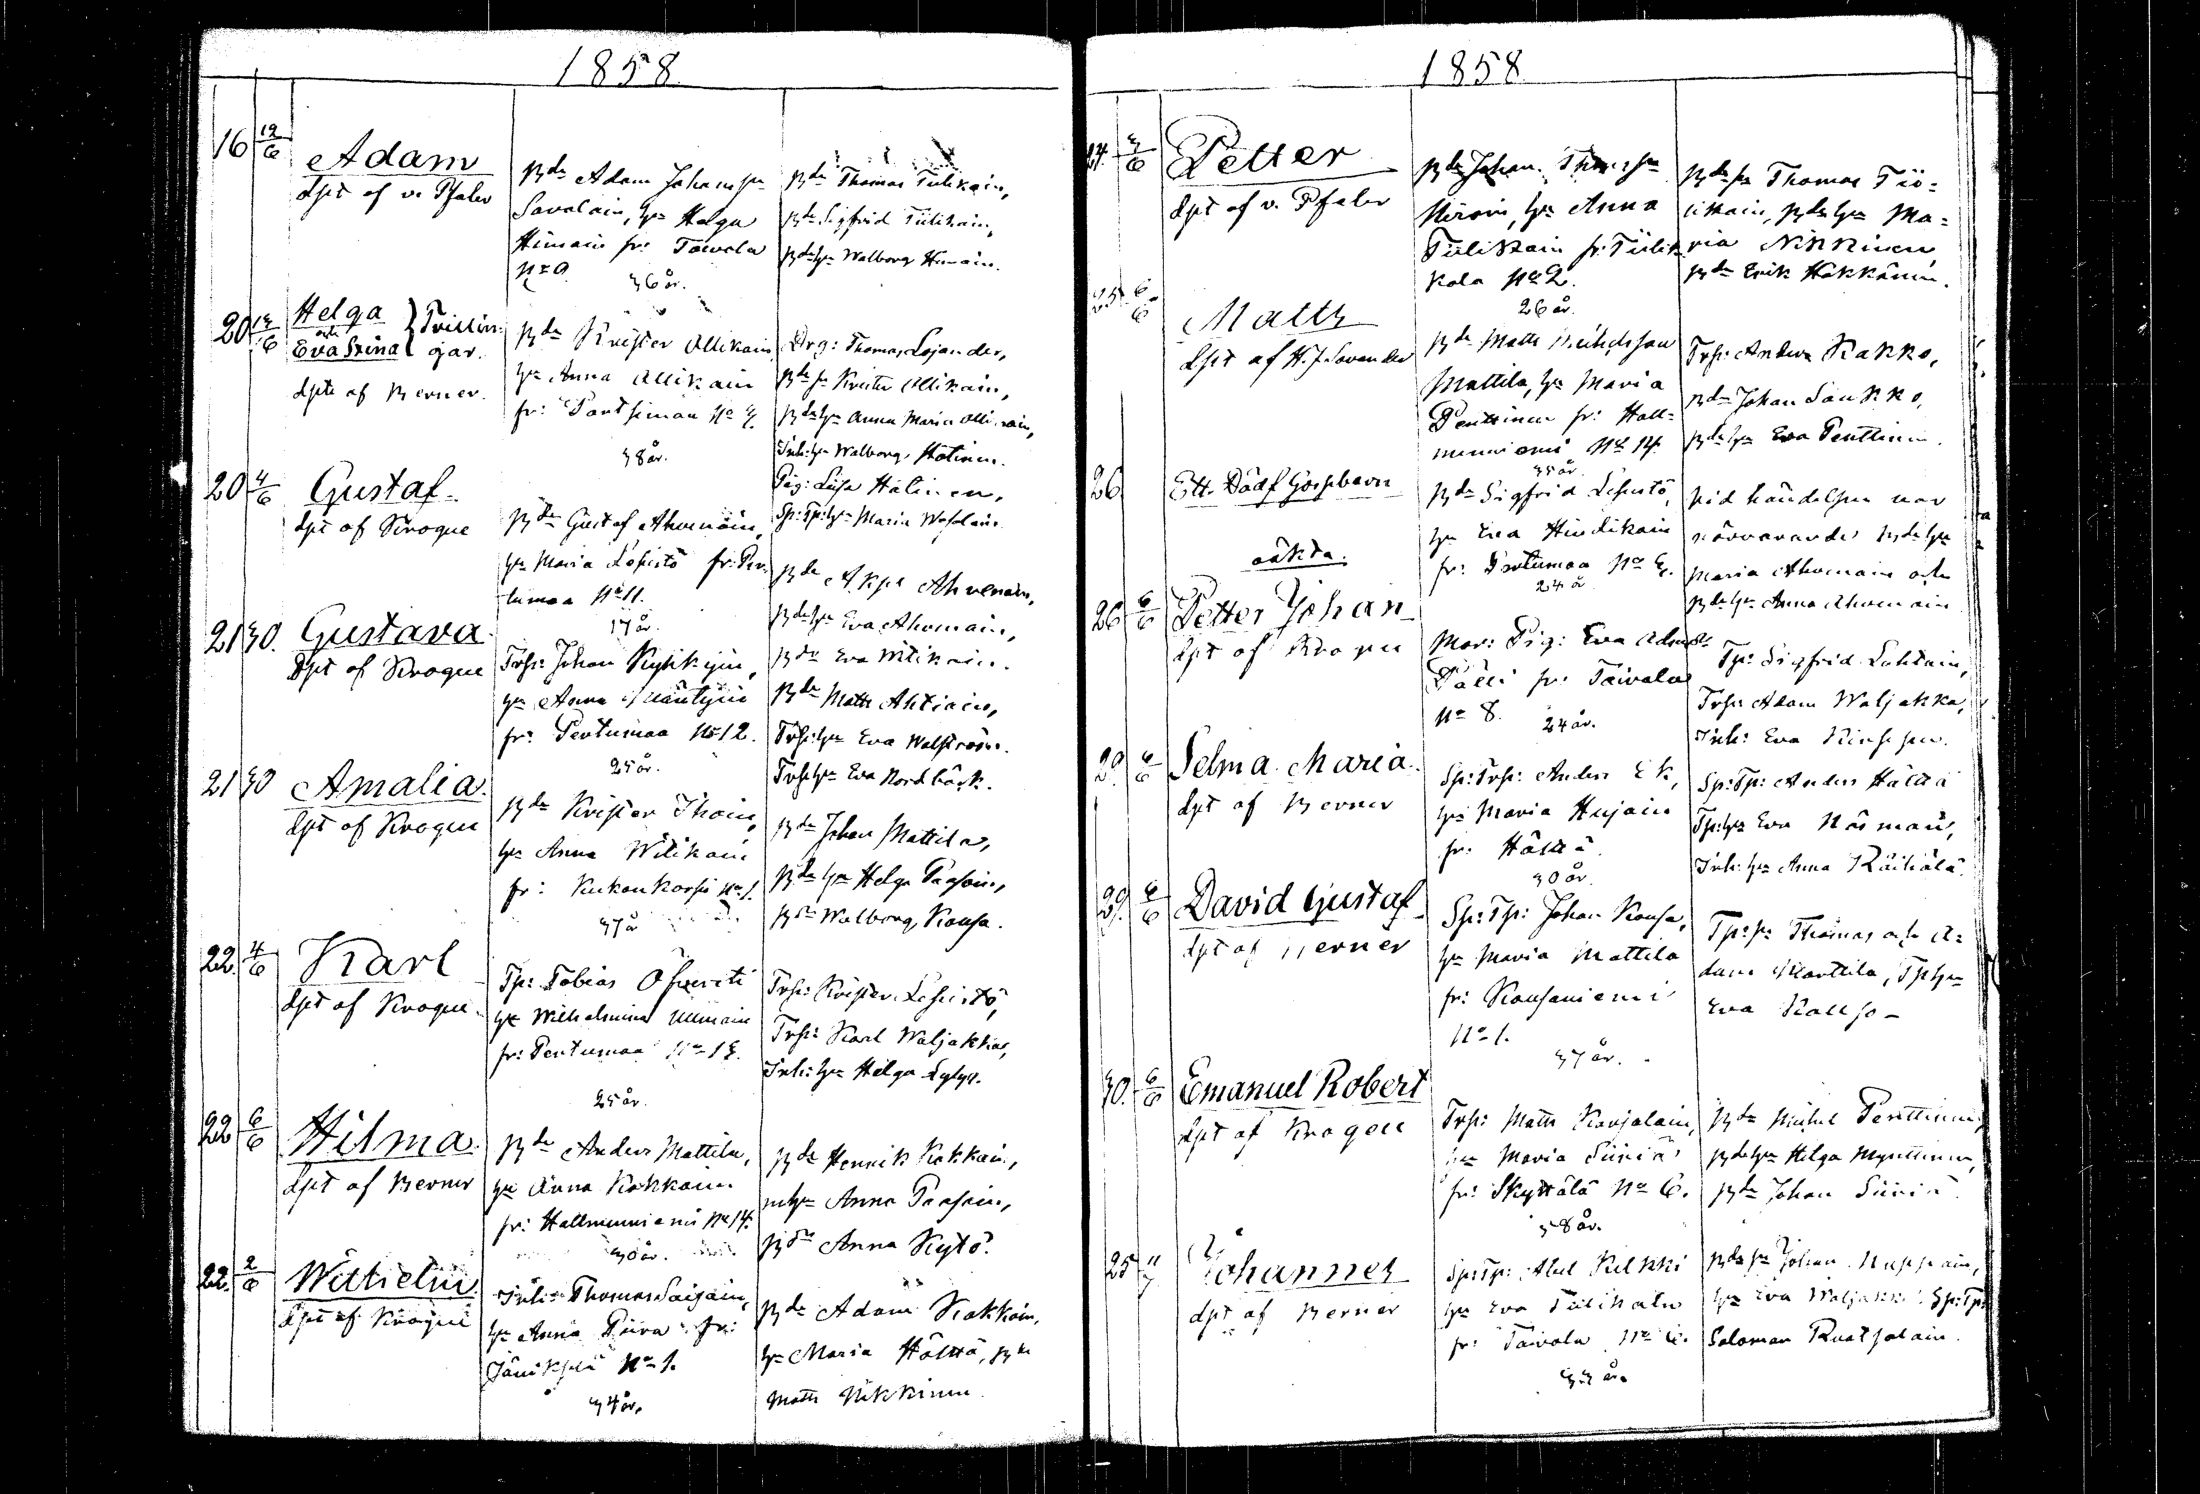 1858
16 12/6 Adam
dpt af v. Pfaler
Bde Adam Johansson
Savolain, hu Helga
Himain fr: Taivala
No 9. 36 år.
Bde Thomas Tulikain,
Bde Sigfrid Tiilikain,
Bde hu Walborg Himain.
20 13/6 Helga
och
Eva Stina
Tvillin-
gar.
dpte af Berner.
Bde Krister Ollikain
hu Anna Ollikain
fr:
38 år.
Drg: Thomas Lojander,
Bde Krister Ollikain,
Bde hu Anna Maria Ollikain,
Inh: hu Walborg Hatinen.
20 4/6 Gustaf
dpt af Krogue
Bde Gustaf Ahvenain,
hu Maria Lehistö fr: Per-
tumaa No 11.
17 år.
Pig: Lisa Halinen,
Sp: Tp: hu Maria
Bde Ahvenain,
Bde hu Eva Ahvenain,
21 30. Gustava
dpt af Krogue
Trp: Johan
hu Anna Mäntyin
fr: Pertumaa No 12.
25 år.
Bde Eva Witikain.
Bde Matts Ahtiain,
Trp: hu Eva Walström.
Trp: hu Eva Nordbäck.
21 30 Amalia
dpt af Krogue
Bde Krister Ihain,
hu Anna Witikain
fr: Kukonkorpi No 1.
37 år
Bde Johan Mattila,
Bde hu Helga Paasoin,
Bde Walborg Kousa.
22. 4/6 Karl
dpt af Krogue
Tp: Tobias
hu Wilhelmina Ullmain
fr: Pertumaa No 13.
25 år.
Trp: Krister Lehistö,
Trp: Karl Waljakka,
Inh: hu Helga Lyly.
22 6/6 Hilma
dpt af Berner
Bde Anders Mattila,
hu Anna Kakkain
fr: Hallmenniemi No 14.
30 år.
Bde Henrik Kakkain,
hu Anna Paasoin,
Bde Anna Kytö.
22. 2/6 Wilhelm
dpt af Krogue
Inh: Thomas Saijain,
hu Anna Piira fr:
No 1.
34 år.
Bde Adam Kakkain,
hu Maria Hölttä, Bde
Matts Nikkinen.
1858
24. 3/6 Petter
dpt af v. Pfaler
Bde Johan Thomasson
hu Anna
Tiilikain fr: Tiilik-
kala No 2.
26 år.
Bde Thomas Tii-
likain, Bde hu Ma-
ria Nikkinen,
Bde Erik Häkkänen.
25 6/6 Matts
dpt af H. J. Savander
Bde Matts Michelsson
Mattila, hu Maria
Penttinen fr: Hall-
menniemi No 14.
35 år.
Trp: Anders Kakko,
Bde Johan Saukko,
Bde hu Eva Penttinen.
26 Ett Dödf Gossebarn
äkta.
Bde Sigfrid Lehistö,
hu Eva Hindikain
fr: Pertumaa No
24 år
Vid händelsen var
närvarande Bde hu
Maria Ahvenain och
Bde hu Anna Ahvenain
26 6/6 Petter Johan
dpt af Krogue
Mor: Pig: Eva Adamsdr
Pälli fr: Taivala
No 8. 24 år.
Tp: Sigfrid Lahtain,
Trp: Adam Waljakka,
Inh: Eva
29. 6/6 Selma Maria
dpt af Berner
Sp: Trp: Anders Ek,
hu Maria Hujain
fr: Hölttä
30 år.
Sp: Tp: Anders Hölttä
Tp: hu Eva Näsman,
Inh: hu Anna Räihälä.
29. 6/6 David Gustaf
dpt af Berner
Sp: Tp: Johan Kousa,
hu Maria Mattila
fr: Kousaniemi
No 1.
37 år.
Tp: Thomas och A-
dam Marttila, Tp hu
Eva Kousa
30. 6/6 Emanuel Robert
dpt af Krogeu
Trp: Matts Karjalain,
hu Maria Siiriä
fr: Skyttälä No 6.
38 år.
Bde Mickel Penttinen,
Bde hu Helga Mynttinen,
Bde Johan Siiriä.
25 11/7 Johannes
dpt af Berner
Sp: Tp: Abel Kilkki
hu Eva Tiilikain
fr: Taivala No 6.
33 år.
Bde Johan
hu Eva Waljakka Sp: Tp:
Salomon Ruotsalain.